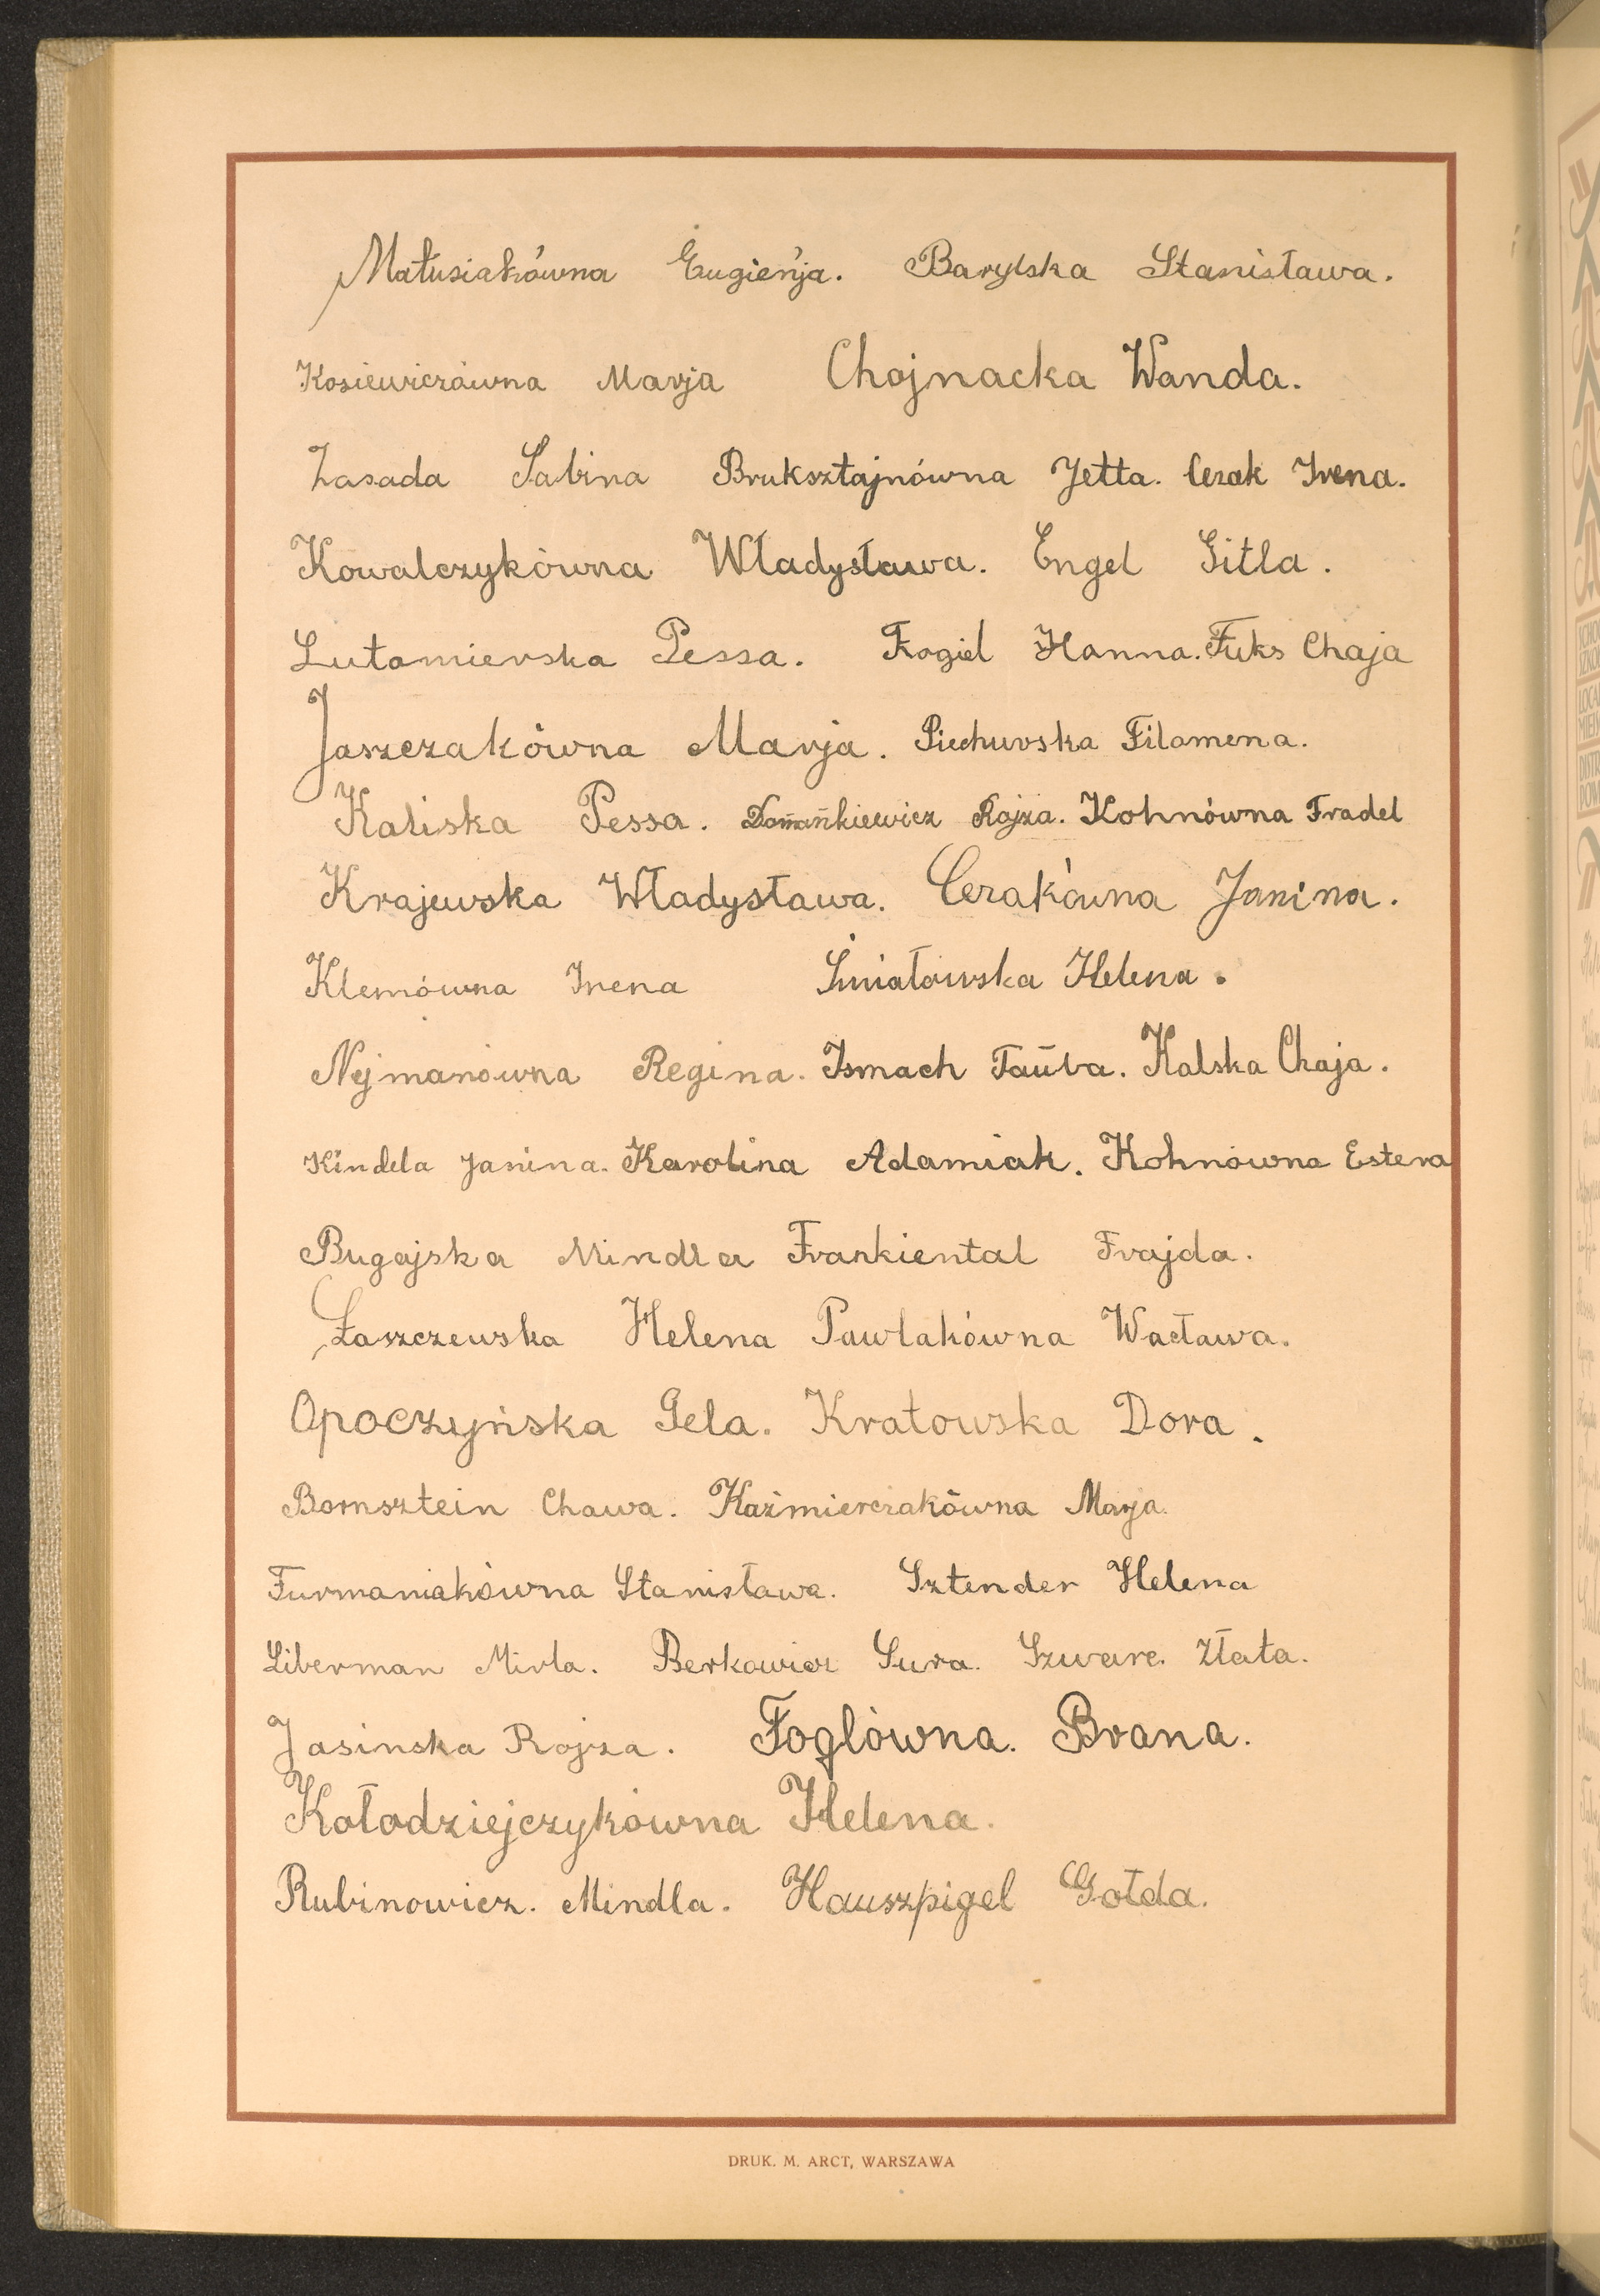 Matusiakówna Eugienja. Barylska Stanisława.
Kosiewiczówna Marja Chojnacka Wanda.
Zasada Sabina Broksztajnówna Jetta. Cezak Irena.
Kowalczykówna Władysława. Engel Gitla.
Lutomierska Pessa. Fogiel Hanna. Fuks Chaja
Jaszczakówna Marja. Piechurska Filomena.
Kaliska Pessa. Domańkiewicz Rojza. Kohnówna Fradel
Krajewska Władysława. Cezakówna Janina.
Klemówna Irena Świątowska Helena.
Nejmanówna Regina. Ismach Tauba. Kalska Chaja.
Kindela Janina. Karolina Adamiak. Kohnówna Estera
Bugajska Mindla Frankiental Frajda.
Łaszczewska Helena Pawlakówna Wacława.
Opoczyńska Gela. Kratowska Dora.
Bornsztein Chawa. Kaźmierczakówna Marja.
Furmaniakówna Stanisława. Sztender Helena
Liberman Mirla. Berkowicz Sura. Szwarc. Złata.
Jasinska Rojza. Foglówna. Brana.
Kołodziejczykówna Helena.
Rubinowicz. Mindla. Hauszpigel Gołda.
DRUK. M. ARCT, WARSZAWA